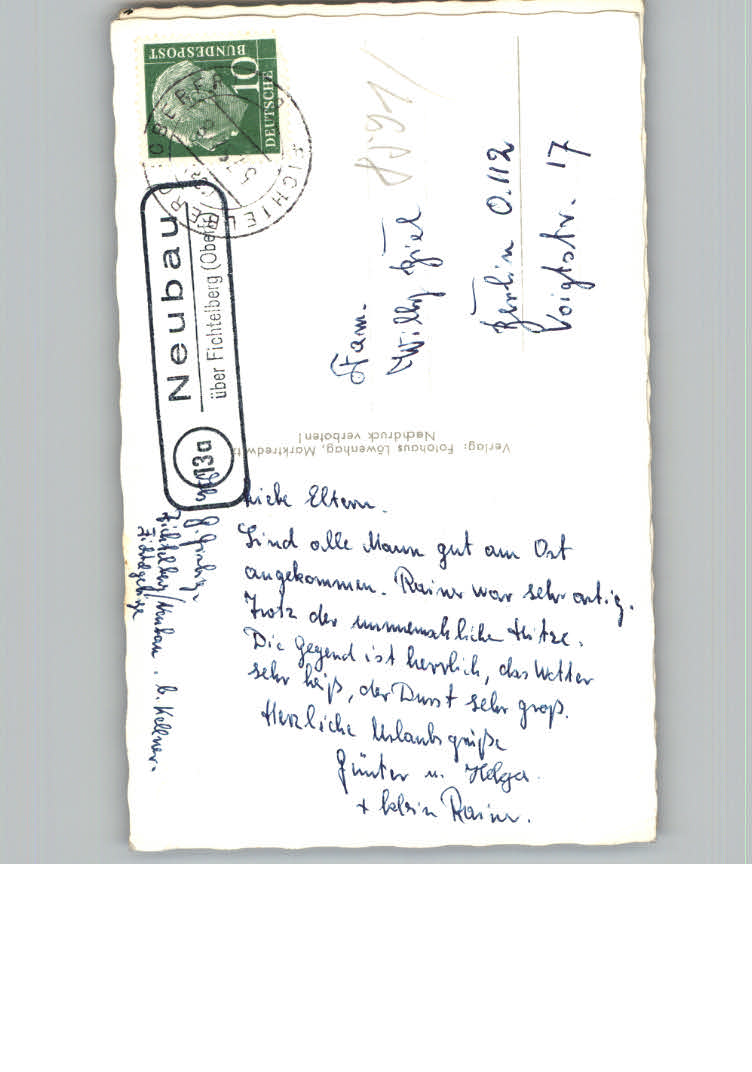 Liebe Eltern.
Sind alle Mann gut am Ort
angekommen. Rainer war sehr artig.
Trotz der unmenschlichen Hitze.
Die Gegend ist herrlich, das Wetter
sehr heiß, der Durst sehr groß.
Herzliche Urlaubsgrüße
Günter u. Helga.
+ klein Rainer.
Fam.
Willy
Berlin O.112
Voigtstr. 17
Fichtelberg/Neubau . b. Kellner.
Fichtelgebirge
Verlag: Fotohaus Löwenhag, Marktredwitz
Nachdruck verboten!
13a
Neubau
über Fichtelberg (Oberfr)
DEUTSCHE
BUNDESPOST
10